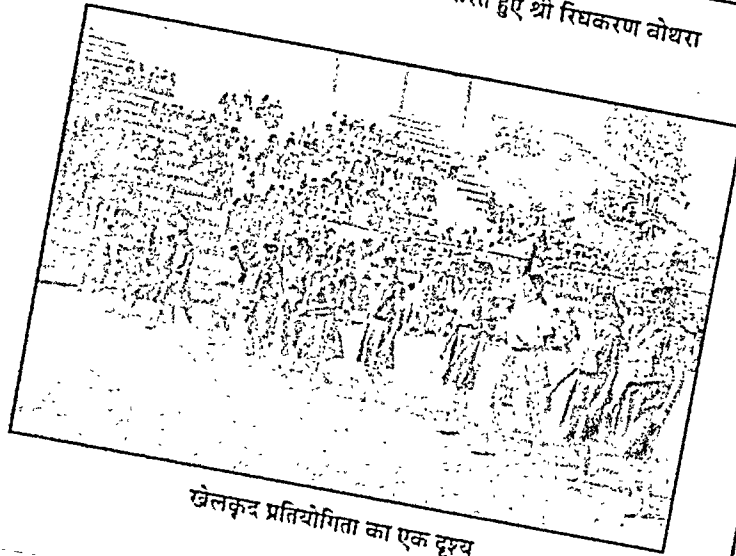 हुए श्री रिधकरण वोथरा
खेलकूद प्रतियोगिता का एक दृश्य